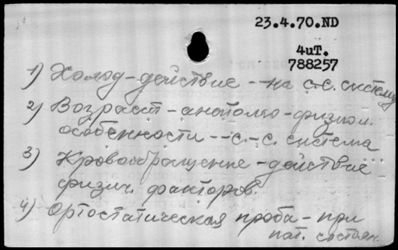 23.4.70.ND
4иT.
788257
1) Холод - действие - на с.с. систему
2) Возраст - анатомо - физиол.
особенности - с.-с. система
3) Кровообращение - действие
физич. факторов
4) Ортостатическая проба - при
пат. состоян.